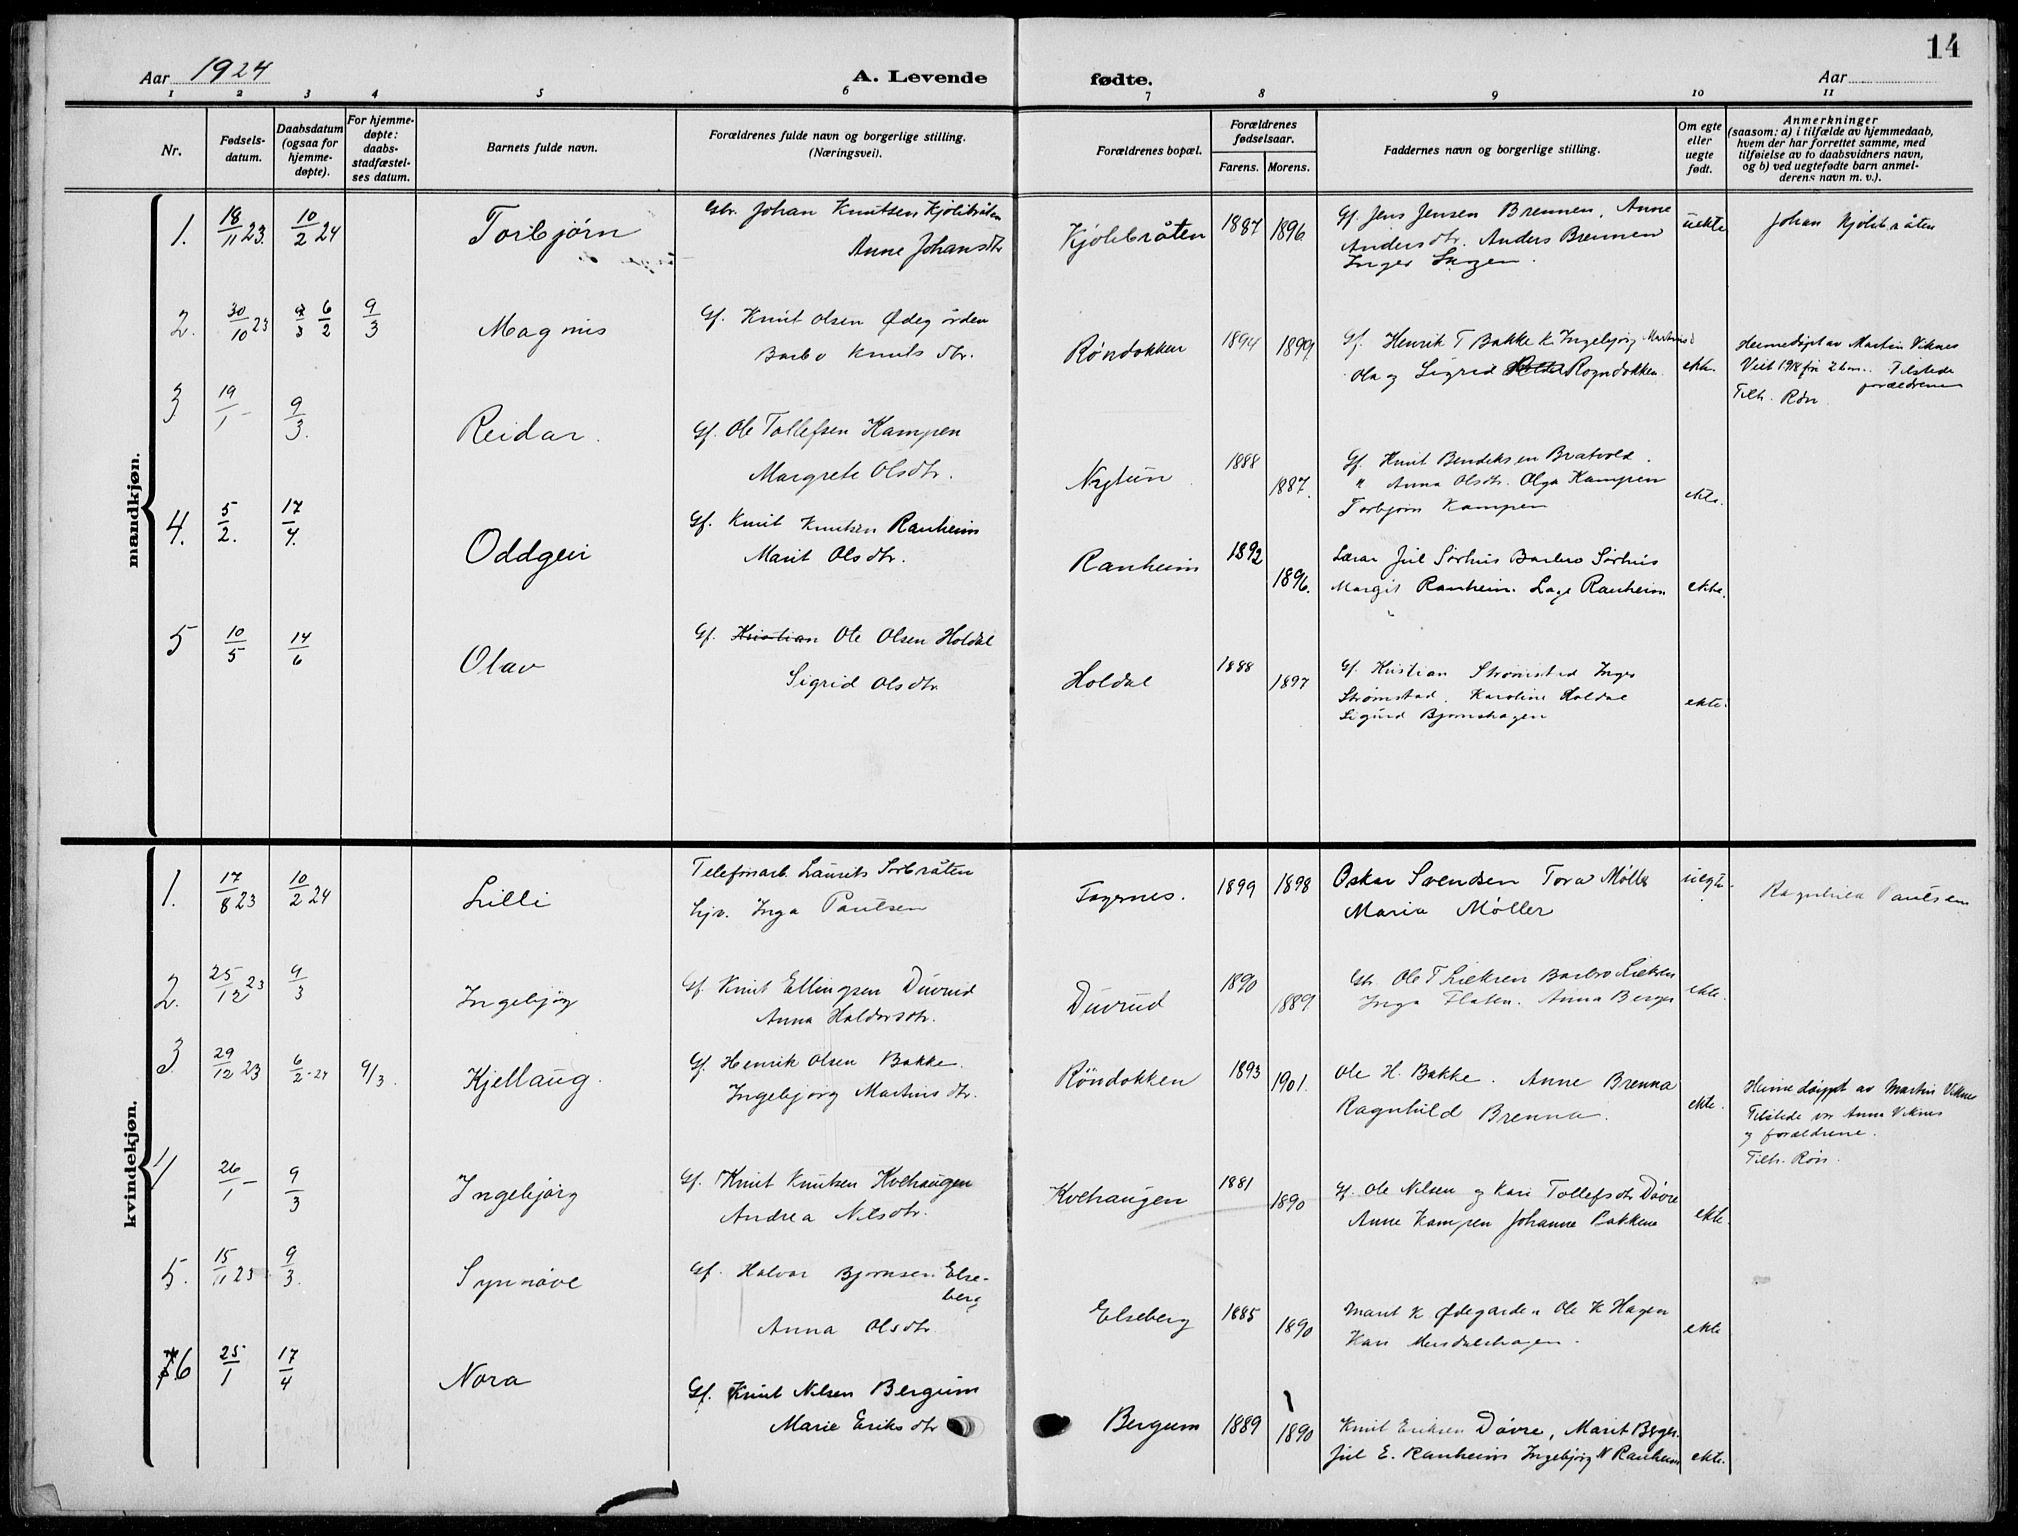 14
Aar 1924
A. Levende
fødte.
Aar
1 2 3 4 5 6 7 8 9 10 11
Nr.
Fødsels-
datum.
Daabsdatum
(ogsaa for
hjemme-
døpte).
For hjemme-
døpte:
daabs-
stadfæstel-
ses datum.
Barnets fulde navn.
Forældrenes fulde navn og borgerlige stilling.
(Næringsvei).
Forældrenes bopæl.
Forældrenes
fødselsaar.
Farens. Morens.
Faddernes navn og borgerlige stilling.
Om egte
eller
uegte
født.
Anmerkninger
(saasom: a) i tilfælde av hjemmedaab,
hvem der har forrettet samme, med
tilføielse av to daabsvidners navn,
og b) ved uegtefødte barn anmel-
derens navn m. v.).
mandkjøn.
1. 18/11 23. 10/2 24 Torbjørn
Johan Knutsen Kjølibråten
Anne Johansdtr
Kjølibråten 1887 1896
Gf. Jens Jensen Brennen, Anne
Andersdtr. Anders Brennen
Inger
uekte
Johan Kjølibråten
2. 30/10 23 9/3 6/2 9/3 Magnus
Gf. Knut Olsen Ødegården
Barbo Knutsdtr.
Røndokken 1894 1899
Gf. Henrik T Bakke k Ingebjørg Martinsd
Ola og Sigrid Rogndokken
ekte.
Hemedøpt av Martin Viknes
Tilstede
forældrene
Tilh. Røn
3 19/1 - 9/3. Reidar.
Gf. Ole Tollefsen Kampen
Margrete Olsdtr.
Nytun 1888 1887.
Gf. Knut Bendiksen Bratvold.
" Anna Olsdtr. Olga Kampen
Torbjørn Kampen
ekte.
4. 5/2. 17/4. Oddgeir
Gf. Knut Knutsen Ranheim
Marit Olsdtr.
Ranheim 1892 1896.
Lærar Jul Sørhus Barbro Sørhus
Margit Ranheim. Lage Ranheim
ekte.
5 10/5 14/6 Olav
Gf. Kristian Ole Olsen Holdal
Sigrid Olsdtr
Holdal 1888 1897
Gf Kristian Strømstad Inger
Strømstad. Karoline Holdal
Sigurd Bjørnshagen
ekte.
kvindekjøn.
1. 17/8 23 10/2 24 Lilli
Telefonarb. Laurits Sorbråten
Inga Paulsen
Fagernes. 1899 1898
Oskar Svendsen Tora Møller
Maria Møller
uegte
Ragnhild Paulsen
2. 25/12 23 9/3 Ingebjøg
Gf. Knut Ellingsen Duvrud
Anna Haldorsdtr.
Duvrud 1890 1889
Ole T Lieksen Barbro Lieksen
Inga Flaten. Anna Berger
ekte.
3 29/12 23 6/2 - 24 9/3. Kjellaug.
Gf. Henrik Olsen Bakke.
Ingebjørg Martinsdtr.
Røndokken 1893 1901.
Ole H. Bakke. Anne Brenna
Ragnhild Brenna.
ekte.
Heime døypt av Martin Viknes
Tilstede var Anne Viknes
og forældrene.
Tilh. Røn.
4 26/1 - 9/3 Ingebjørg
Gf. Knut Knutsen Kvehaugen
Andrea Nilsdtr.
Kvehaugen 1881 1890
Gf. Ole Nilsen og Kari Tollefsdtr Døvre
Anne Kampen Johanne Bakkene
ekte.
5. 15/11 23 9/3. Synnøve
Gf. Halvor Bjørnsen Else-
berg
Anna Olsdtr
Elseberg 1885 1890
Marit K Ødegarden Ole K Hagen
Kari
ekte
6 25/1 17/4 Nora
Gf. Knut Nilsen Bergum
Marie Eriksdtr
Bergum 1889 1890
Knut Eriksen Døvre, Marit Berge.
Jul E. Ranheim Ingebjørg N Ranheim
ekte.